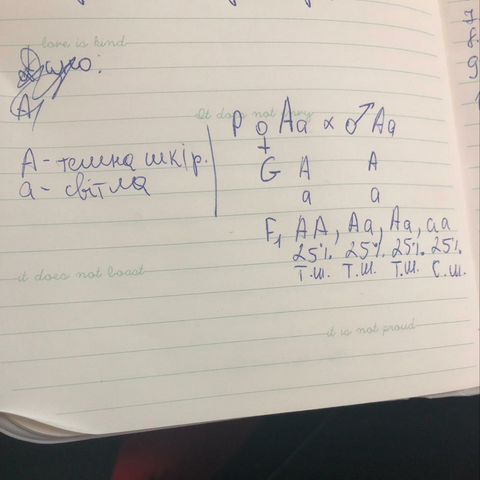 love is kind
Дано:
A,
It does not envy
P ♀ Aa x ♂ Aa
A - темна шкір.
a - світла
G A A
a a
F₁ AA, Aa, Aa, aa
25% 25% 25% 25%
Т.ш. Т.ш. Т.ш. С.ш.
it does not boast
it is not proud
7.
8.
9
1